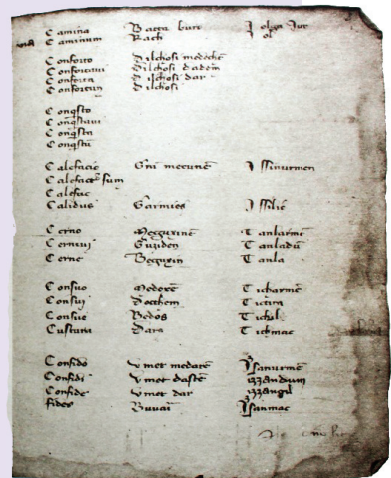 Camina Batta burt
Caminum Rach Jol
Conforto Dilchosi medehē
Confortaui Dilchosi dadem
Conforta Dilchosi dar
Confortum Dilchosi
Conqsto
Conqstaui
Conqsta
Conqstu
Calefacio Grū mecunē Issinurmen
Calefactus sum
Calefac
Calidus Garmies Issilic
Cerno Tanlarmē
Cernui Guziden Tanladū
Cerne Beguxin Tanla
Consuo Medorē Ticharmē
Consui Docthem Tictim
Consue Bedos Tichil
Custura Dara Tichmac
Confido Vmet medarē Isanurmē
Confidi Vmet dastē izzandum
Confide Vmet dar izzangil
fides Isanmac